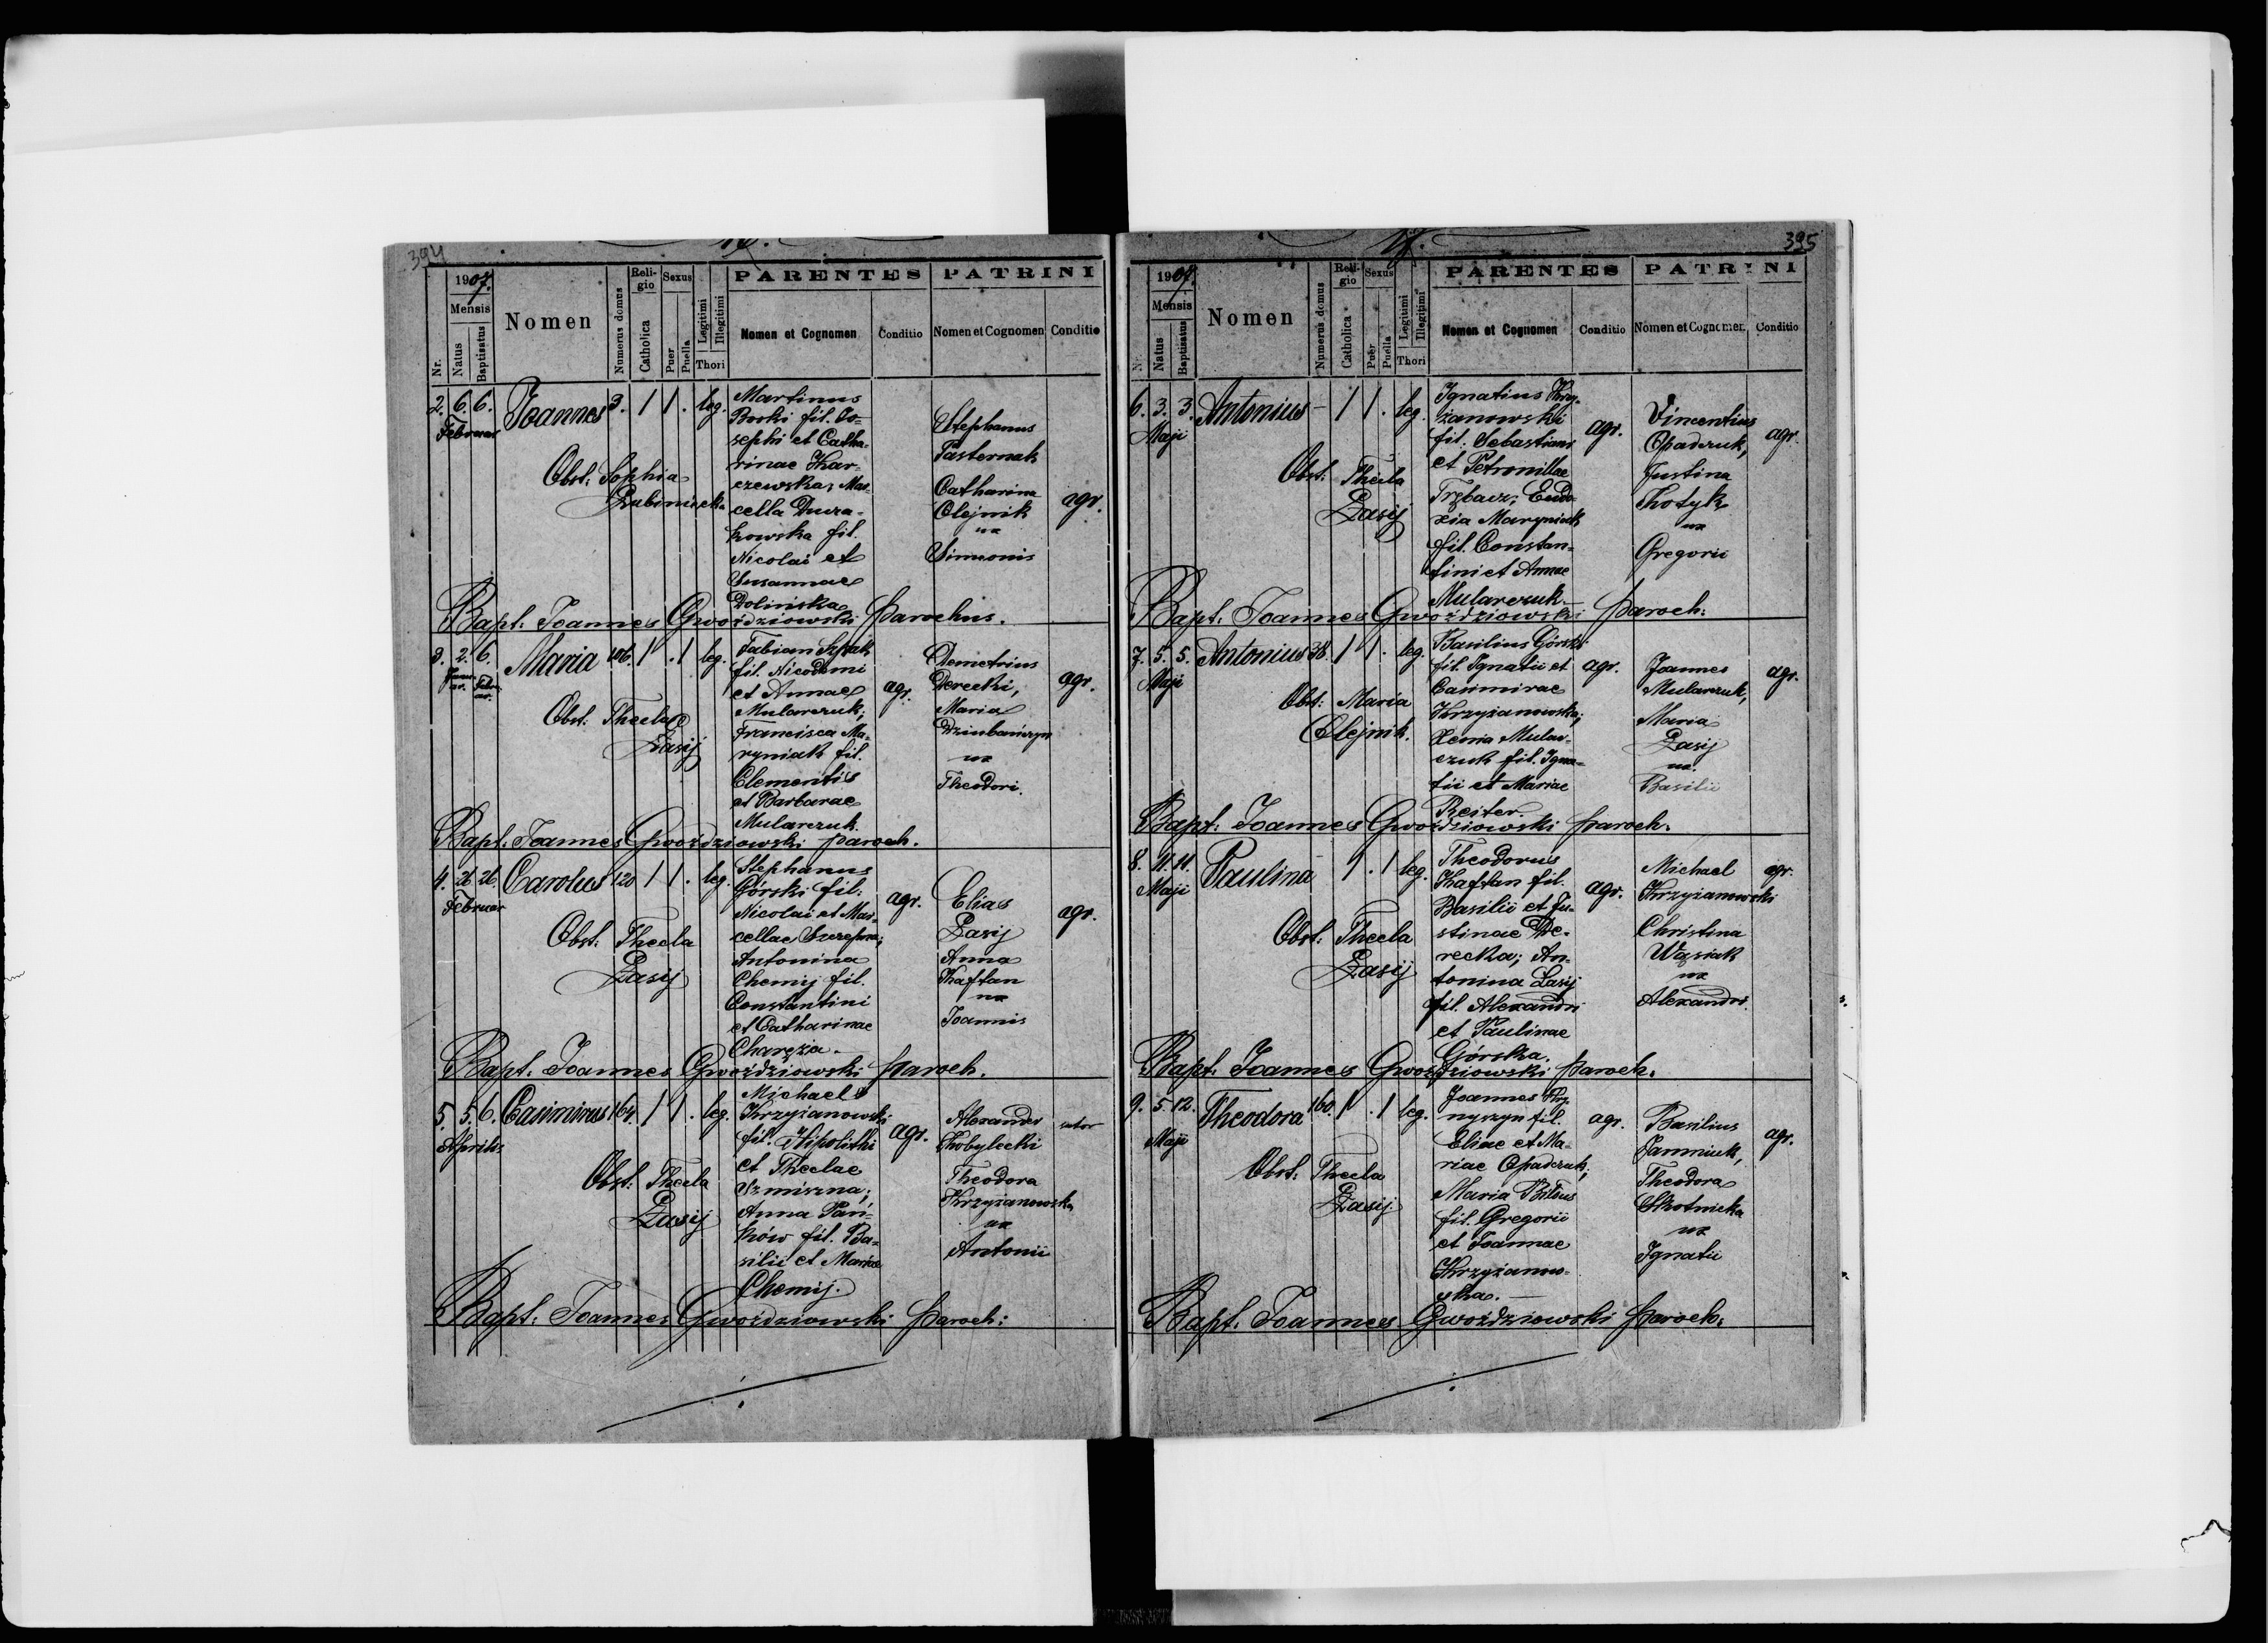 394
1907.
Mensis
Nr.
Natus
Baptisatus
Nomen
Numerus domus
Religio
Catholica
Sexus
Puer
Puella
Legitimi
Illegitimi
Thori
PARENTES
Nomen et Cognomen
Conditio
PATRINI
Nomen et Cognomen
Conditio
2. 6. 6. Joannes 3. 1 1 . leg.
Februar
Obst: Sophia
Martinus
Borki fil. Jo=
sephi et Catha=
rinae Kar=
czewska; Mar=
cella Dura=
kowska fil.
Nicolai et
Susannae
Dolińska
Stephanus
Pasternak
Catharina
Olejnik
ux
Simeonis
agr.
Bapt: Joannes Gwoździowski parochus.
3. 2. 6. Maria 106. 1 . 1 leg.
Januar. Februar.
Obst: Thecla
Łasij
Fabian Szpak
fil. Nicodemi
et Annae
Mularczuk;
Francisca Ma=
ryniak fil.
Clementis
et Barbarae
Mularczuk.
agr.
Demetrius
Derecki,
Maria
ux
Theodori.
agr.
Bapt. Joannes Gwoździowski paroch.
4. 26 26. Carolus 120 1 1 . leg.
Februar
Obst: Thecla
Łasij
Stephanus
Górski fil:
Nicolai et Mar=
cellae
Antonina
Chemij fil.
Constantini
et Catharinae
agr.
Elias
Łasij
Anna
Kaftan
ux
Joannis
agr.
Bapt. Joannes Gwoździowski paroch.
5. 5. 6. Casimirus 164. 1 1 . leg.
Aprilis
Obst: Thecla
Łasij
Michael
Krzyżanowski
fil. Hipolithi
et Theclae
Anna Pań=
ków fil. Ba=
silii et Mariae
Chemij.
agr.
Alexander
Kobylecki
Theodora
Krzyżanowska
ux
Antonii
sutor
Bapt: Joannes Gwoździowski paroch:
395
1907.
Mensis
Nr.
Natus
Baptisatus
Nomen
Numerus domus
Religio
Catholica
Sexus
Puer
Puella
Legitimi
Illegitimi
Thori
PARENTES
Nomen et Cognomen
Conditio
PATRINI
Nomen et Cognomen
Conditio
6. 3. 3. Antonius - 1 1 . leg.
Maji
Obst: Thecla
Łasij
Ignatius Krzy=
żanowski
fil. Sebastiani
et Petronillae
Trębacz; Eudo
xia Maryniak
fil. Constan=
tini et Annae
Mularczuk.
agr.
Vincentius
Opadczuk,
Justina
ux
Gregorii
agr.
Bapt: Joannes Gwoździowski paroch:
7. 5. 5. Antonius 38. 1 1 . leg.
Maji
Obst: Maria
Olejnik.
Basilius Górski
fil. Ignatii et
Casimirae
Krzyżanowska;
Xenia Mular=
czuk fil. Igna=
tii et Mariae
Reiter.
agr.
Joannes
Mularczuk,
Maria
Łasij
ux.
Basilii
agr.
Bapt: Joannes Gwoździowski paroch.
8. 11. 11. Paulina 1 . 1 leg.
Maji
Obst: Thecla
Łasij
Theodorus
Kaftan fil.
Basilii et Ju=
stinae De=
recka; An=
tonina Łasij
fil. Alexandri
et Paulinae
Górska.
agr.
Michael
Krzyżanowski
Christina
Wąsiak
ux
Alexandri.
agr.
Bapt: Joannes Gwoździowski paroch.
9. 5. 12. Theodora 160. 1 . 1 leg.
Maji
Obst: Thecla
Łasij
Joannes Hry=
nyszyn fil.
Eliae et Ma=
riae Opadczuk;
Maria
fil. Gregorii
et Joannae
Krzyżanow=
ska.
agr.
Basilius
Theodora
Skotnicka
ux
Ignatii
agr.
Bapt: Joannes Gwoździowski paroch.